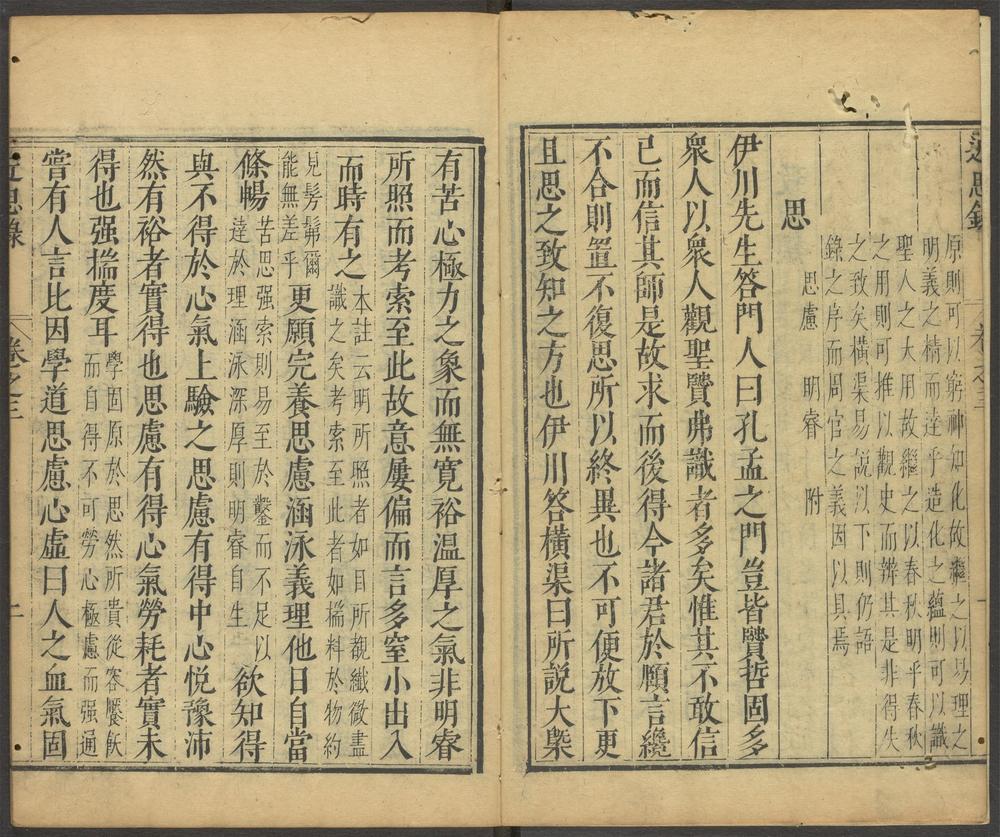 近思錄 卷之三
原則可以窮神知化故繼之以易理之
明義之精而達乎造化之蘊則可以識
聖人之大用故繼之以春秋明乎春秋
之用則可推以觀史而辨其是非得失
之致矣橫渠易說以下則仍語
錄之序而周官之義因以具焉
思慮 明睿 附
思
伊川先生答門人曰孔孟之門豈皆賢哲固多
衆人以衆人觀聖賢弗識者多矣惟其不敢信
己而信其師是故求而後得今諸君於頤言纔
不合則置不復思所以終異也不可便放下更
且思之致知之方也伊川答橫渠曰所說大槩
有苦心極力之象而無寬裕溫厚之氣非明睿
所照而考索至此故意屢偏而言多窒小出入
而時有之本註云明所照者如目所覩纖微盡
識之矣考索至此者如揣料於物約
見髣髴爾
能無差乎更願完養思慮涵泳義理他日自當
條暢苦思强索則易至於鑿而不足以
達於理涵泳深厚則明睿自生欲知得
與不得於心氣上驗之思慮有得中心悅豫沛
然有裕者實得也思慮有得心氣勞耗者實未
得也强揣度耳學固原於思然所貴從容饜飫
而自得不可勞心極慮而强通
嘗有人言比因學道思慮心虛曰人之血氣固
近思錄 卷之三